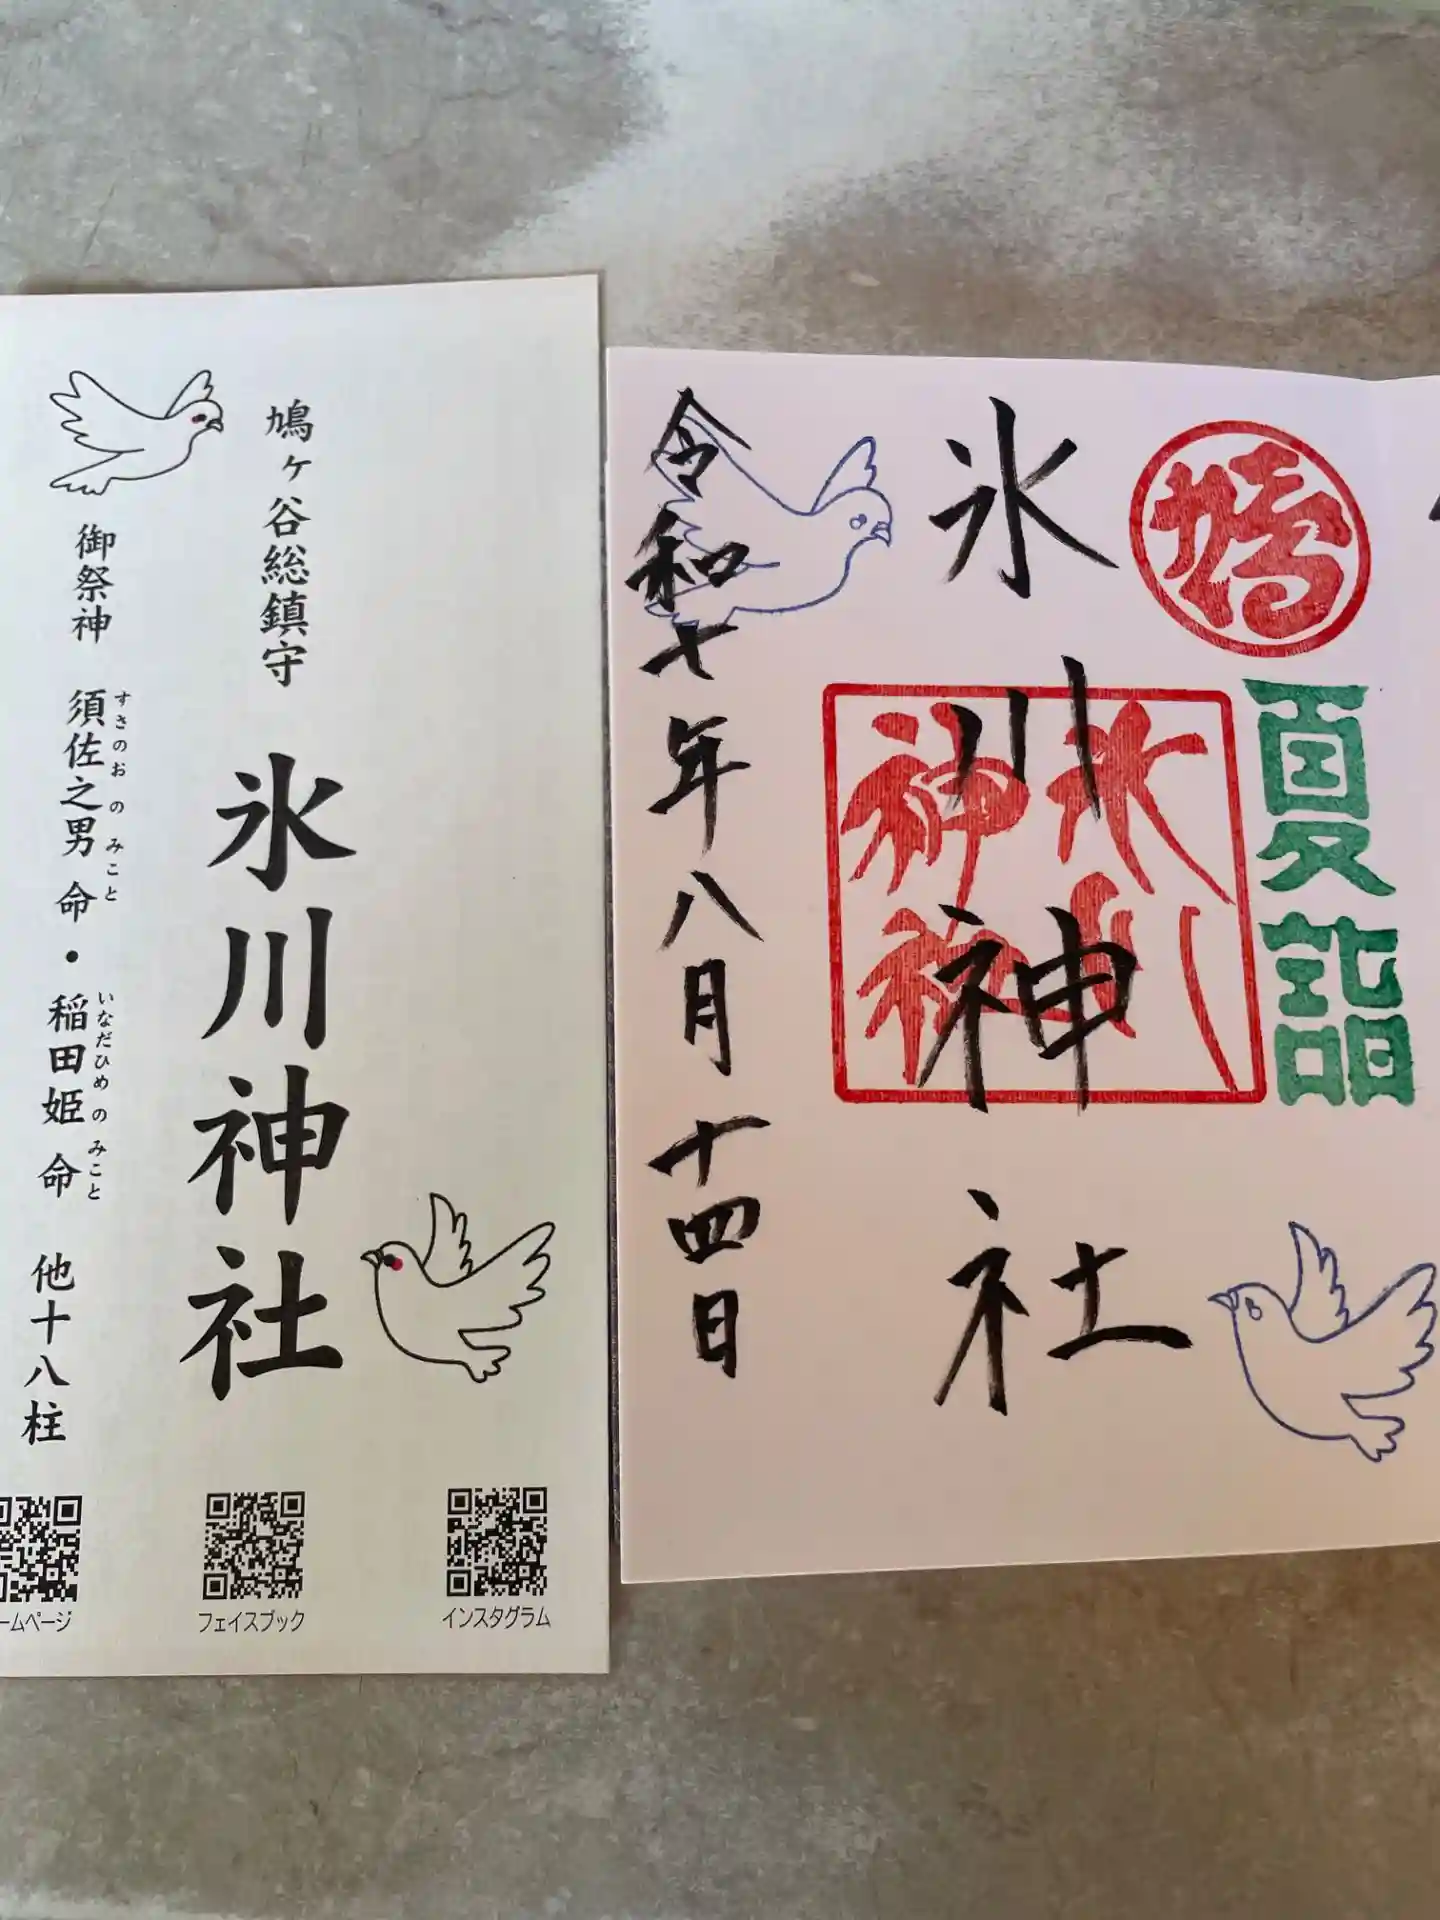 鳩ヶ谷総鎮守
氷川神社
御祭神 須佐之男命・稲田姫命 他十八柱
すさのおのみこと
いなだひめのみこと
ームページ
フェイスブック
インスタグラム
夏詣
氷川神社
氷川
神社
令和七年八月十四日